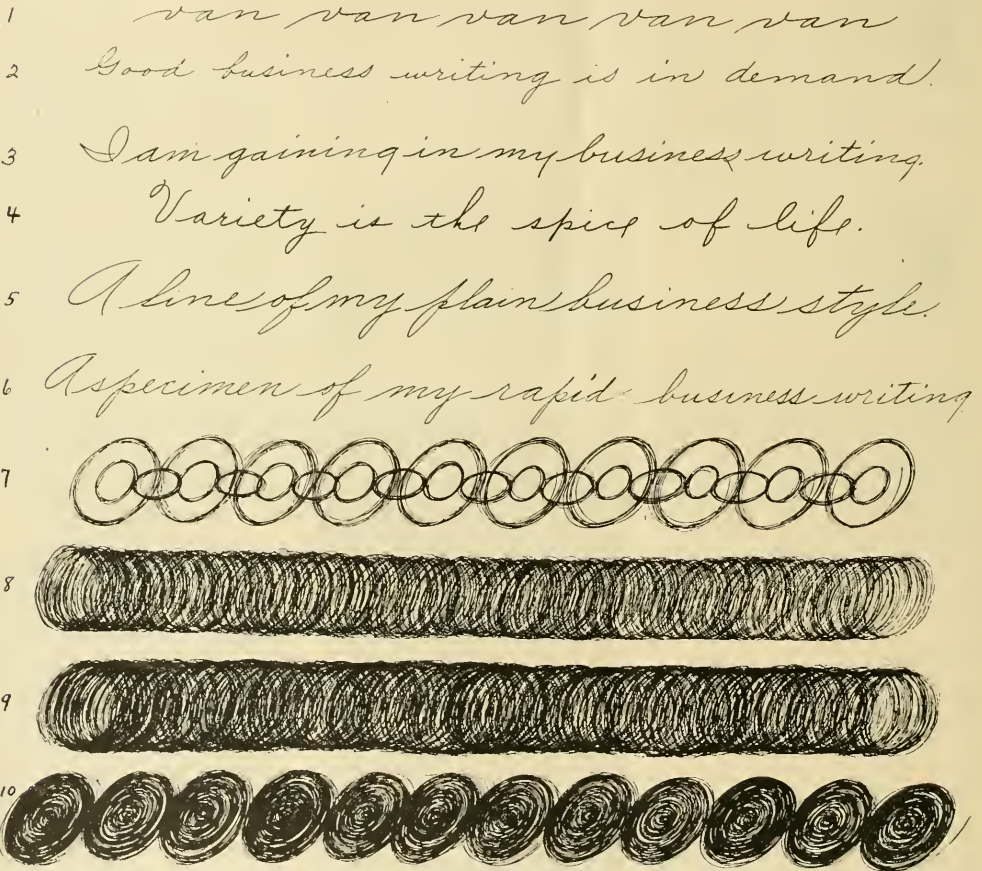 1 van van van van van
2 Good business writing is in demand.
3 I am gaining in my business writing.
4 Variety is the spice of life.
5 A line of my plain business style.
6 A specimen of my rapid business writing
7
8
9
10